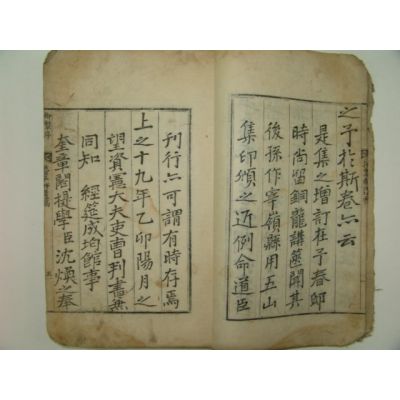 之予於斯卷亦云
是集之增訂在予春邸
時尚留銅龍講筵聞其
後孫作宰嶺縣用五山
集印頒之近例命道臣
刊行亦可謂有時存焉
上之十九年乙卯陽月之
望資憲大夫吏曹判書兼
同知　經筵成均館事
奎章閣提學臣沈煥之奉